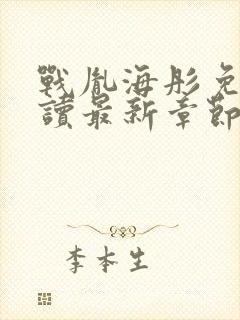 戰胤海彤免
讀最新章節
李本生